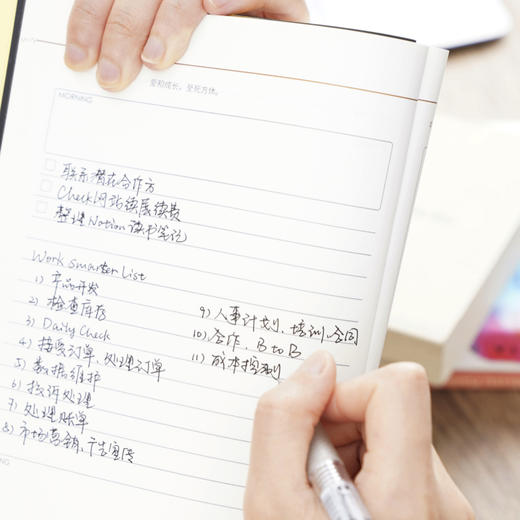 爱和成长，至死方休。
MORNING
联系潜在合作方
Check网站续展续费
整理Notion读书笔记
Work smarter List
1) 产品开发
2) 检查库存
3) Daily Check
4) 接受订单、处理订单
5) 数据维护
6) 投诉处理
7) 处理账单
8) 市场营销、广告宣传
9) 人事计划、培训、合同
10) 合作、B to B
11) 成本控制